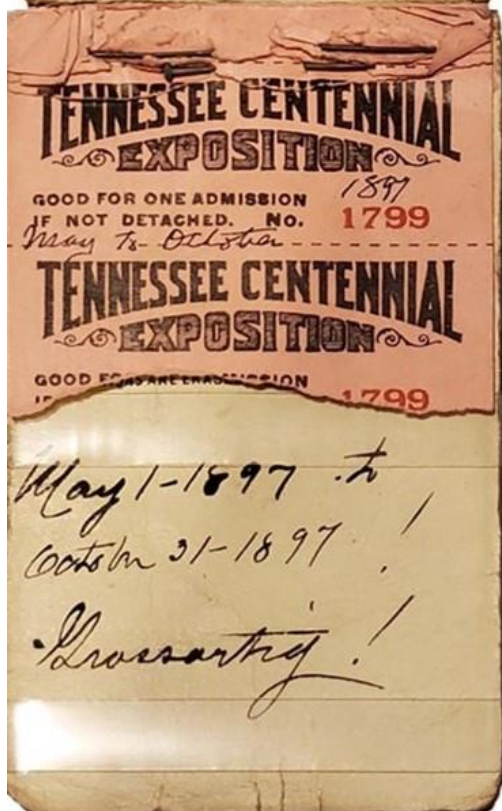 TENNESSEE CENTENNIAL
EXPOSITION
1897
GOOD FOR ONE ADMISSION
IF NOT DETACHED. No. 1799
May to October
TENNESSEE CENTENNIAL
EXPOSITION
GOOD
1799
May 1-1897 to
October 31-1897 !
Grossartig !